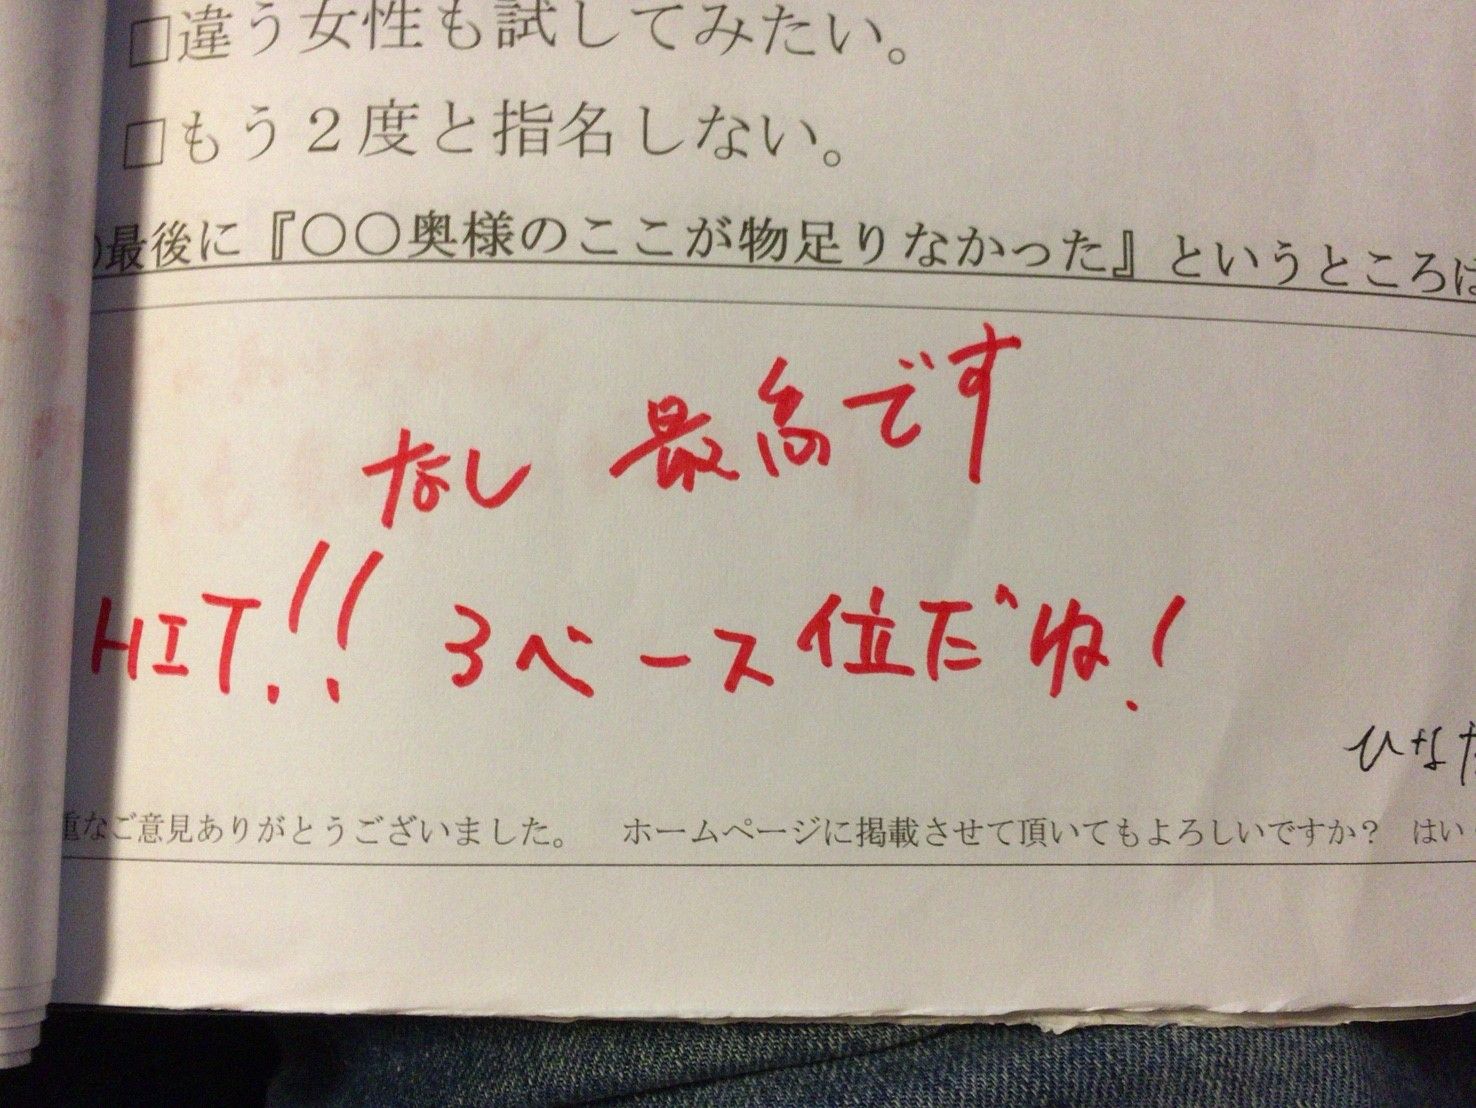 □違う女性も試してみたい。
□もう２度と指名しない。
)最後に『〇〇奥様のここが物足りなかった』というところは
なし 最高です
HIT!! 3ベース位だね!
ひなた
重なご意見ありがとうございました。 ホームページに掲載させて頂いてもよろしいですか? はい